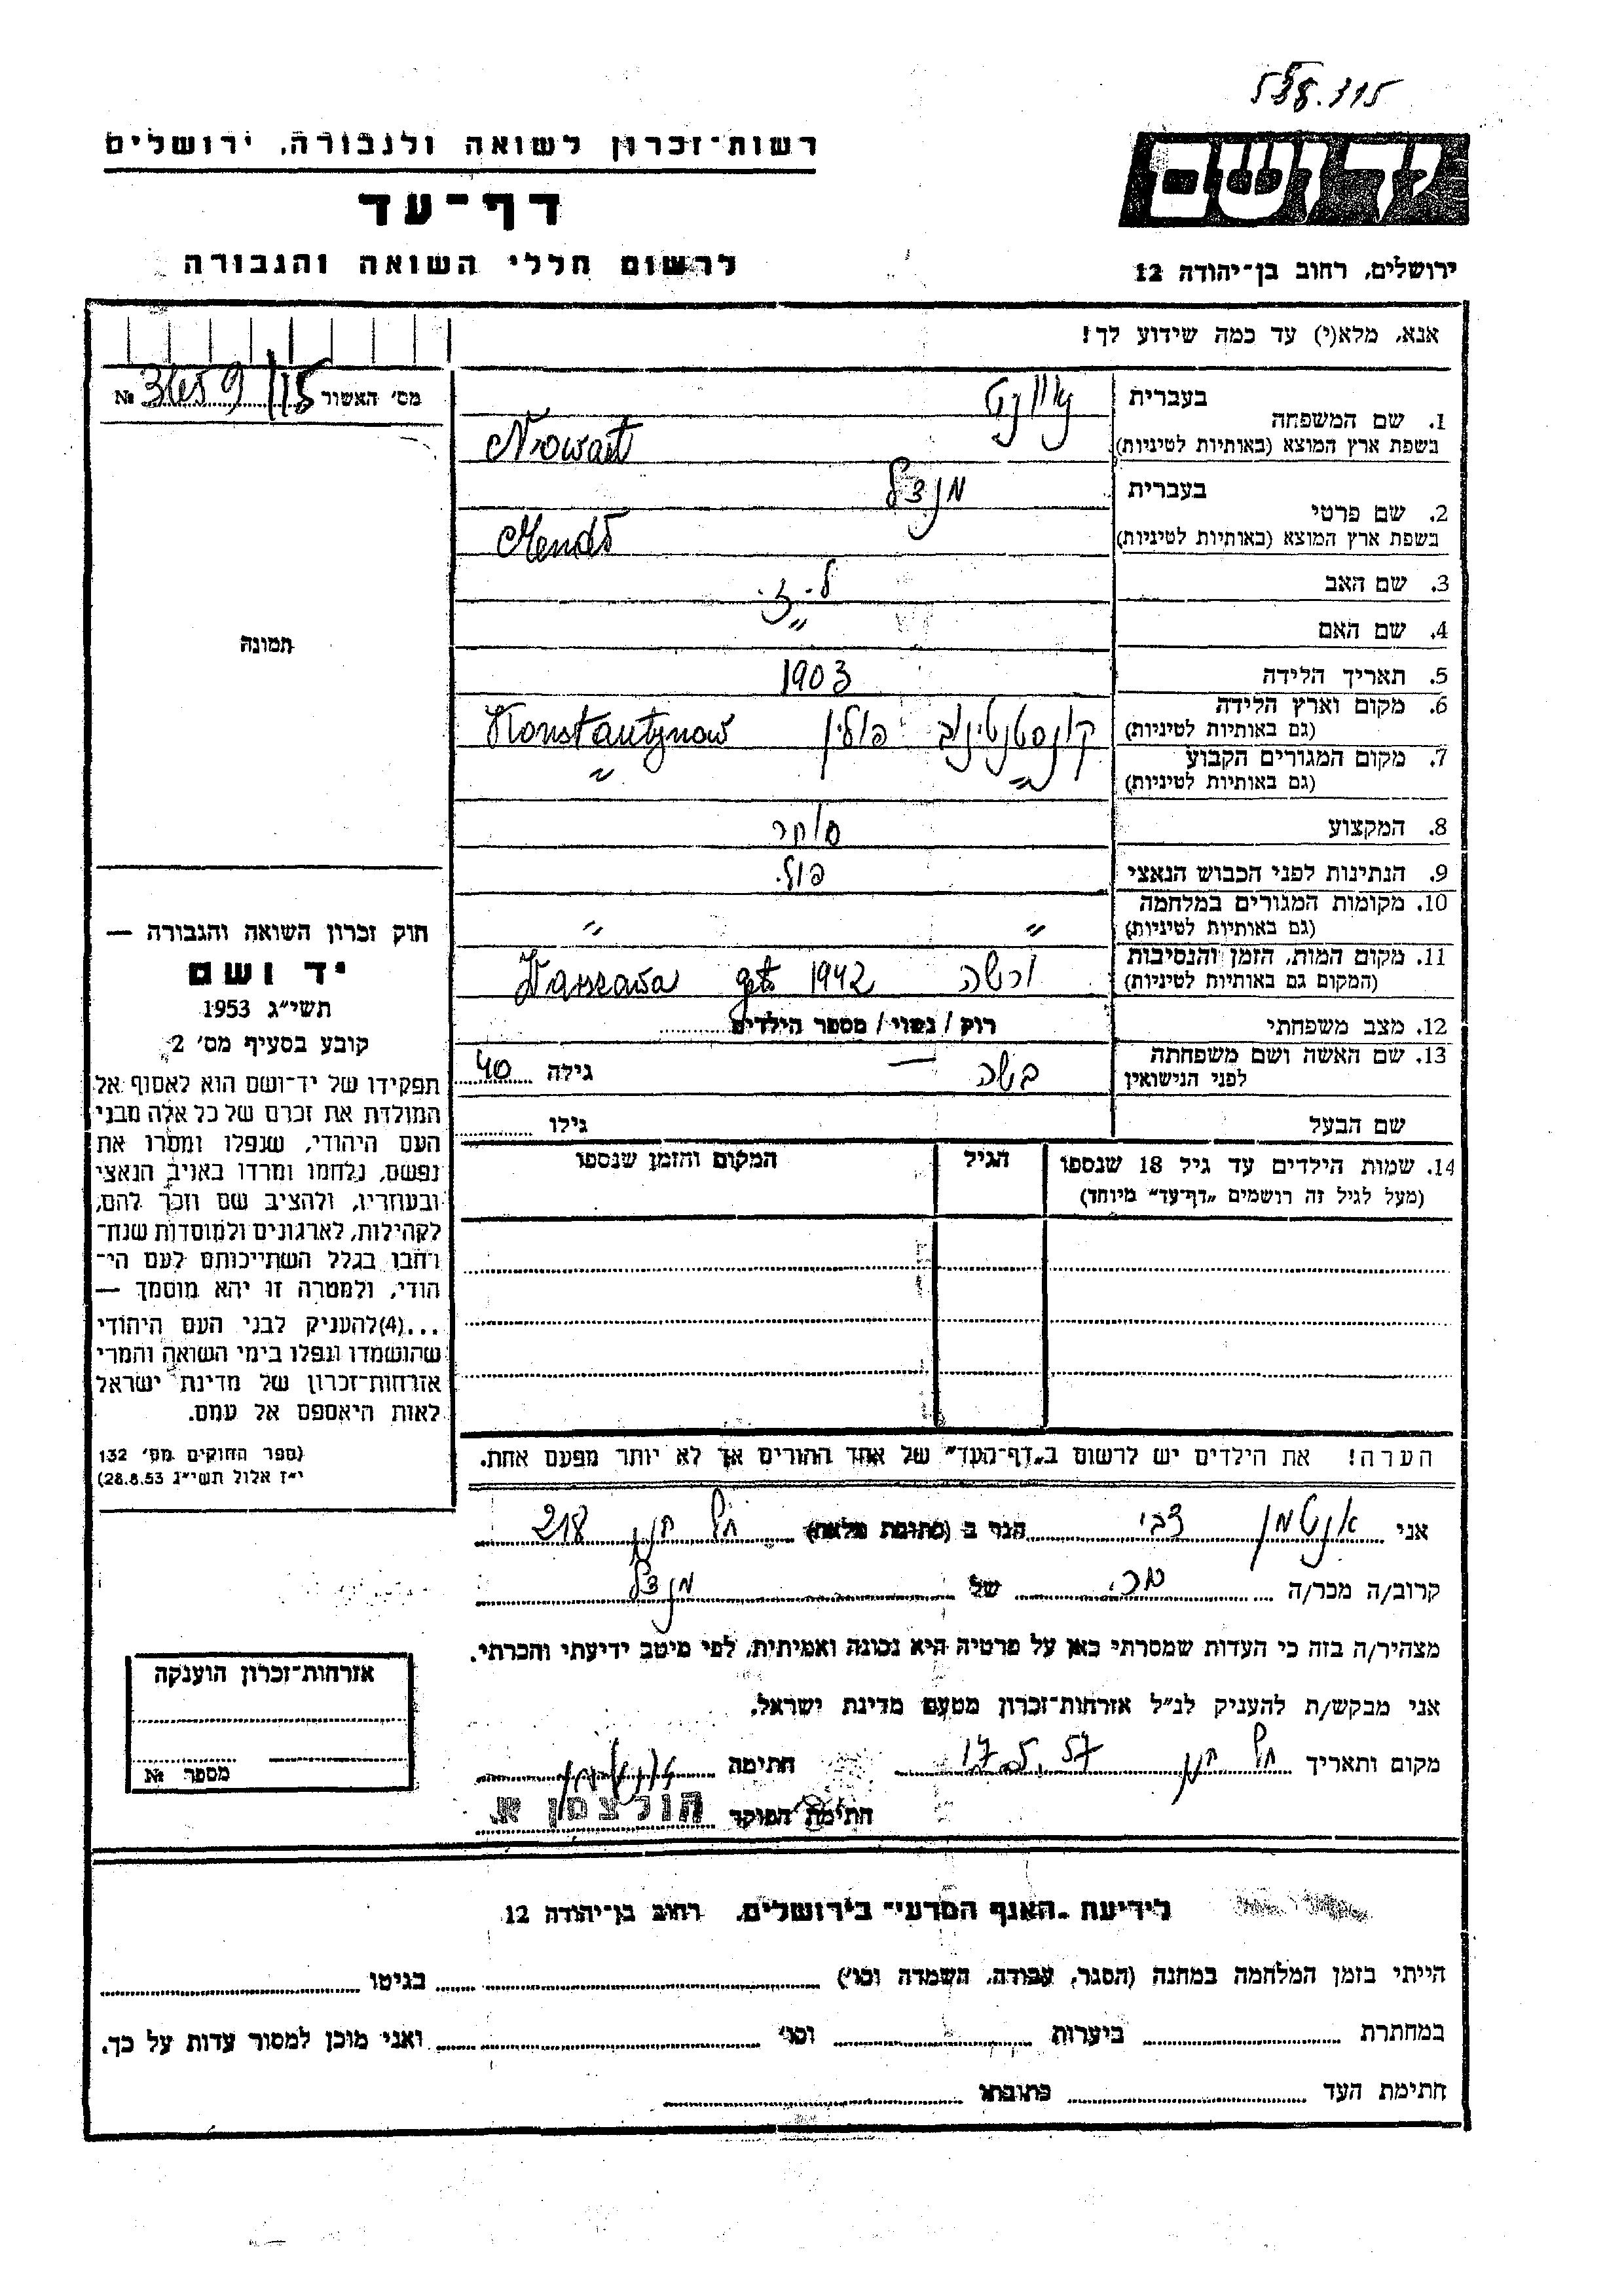 538.115
רשות־זכרון לשואה ולגבורה, ירושלים
דף־עד
לרשום חללי השואה והגבורה
יד ושם
ירושלים, רחוב בן־יהודה 12
אנא, מלא(י) עד כמה שידוע לך!
מס' האשור 115 № 
1. שם המשפחה
בעברית
בשפת ארץ המוצא (באותיות לטיניות)
2. שם פרטי
בעברית מנדל
בשפת ארץ המוצא (באותיות לטיניות)
3. שם האב ל. י.
4. שם האם "
5. תאריך הלידה 1903
6. מקום וארץ הלידה קונסטנטינוב פולין Konstantynow
(גם באותיות לטיניות)
7. מקום המגורים הקבוע " "
(גם באותיות לטיניות)
8. המקצוע סוחר
9. הנתינות לפני הכבוש הנאצי פול.
10. מקומות המגורים במלחמה " "
(גם באותיות לטיניות)
11. מקום המות, הזמן והנסיבות ורשה 1942 geto Warszawa
(המקום גם באותיות לטיניות)
12. מצב משפחתי רוק / נשוי / מספר הילדים
13. שם האשה ושם משפחתה
לפני הנישואין בשה — גילה 40
שם הבעל גילו
14. שמות הילדים עד גיל 18 שנספו הגיל המקום והזמן שנספו
(מעל לגיל זה רושמים „דף־עד" מיוחד)
הערה! את הילדים יש לרשום ב„דף־העד" של אחד ההורים אך לא יותר מפעם אחת.
תמונה
חוק זכרון השואה והגבורה —
יד ושם
תשי"ג 1953
קובע בסעיף מס' 2
תפקידו של יד־ושם הוא לאסוף אל
המולדת את זכרם של כל אלה מבני
העם היהודי, שנפלו ומסרו את
נפשם, נלחמו ומרדו באויב הנאצי
ובעוזריו, ולהציב שם וזכר להם,
לקהילות, לארגונים ולמוסדות שנח־
רבו בגלל השתייכותם לעם הי־
הודי, ולמטרה זו יהא מוסמך —
...(4)להעניק לבני העם היהודי
שהושמדו ונפלו בימי השואה והמרי
אזרחות־זכרון של מדינת ישראל
לאות היאספם אל עמם.
(ספר החוקים מס' 132
י"ז אלול תשי"ג 28.8.53)
אני צבי הגר ב (כתובת מלאה) 218
קרוב/ה מכר/ה מכר של מנדל
מצהיר/ה בזה כי העדות שמסרתי כאן על פרטיה היא נכונה ואמיתית, לפי מיטב ידיעתי והכרתי.
אני מבקש/ת להעניק לנ"ל אזרחות־זכרון מטעם מדינת ישראל.
מקום ותאריך 17.5.57 חתימה
חתימת הפוקד הולצמן א.
אזרחות־זכרון הוענקה
מספר №
לידיעת „האגף המדעי" בירושלים, רחוב בן־יהודה 12
הייתי בזמן המלחמה במחנה (הסגר, עבודה, השמדה וכו') בגיטו
במחתרת ביערות וכו' ואני מוכן למסור עדות על כך.
חתימת העד כתובתו